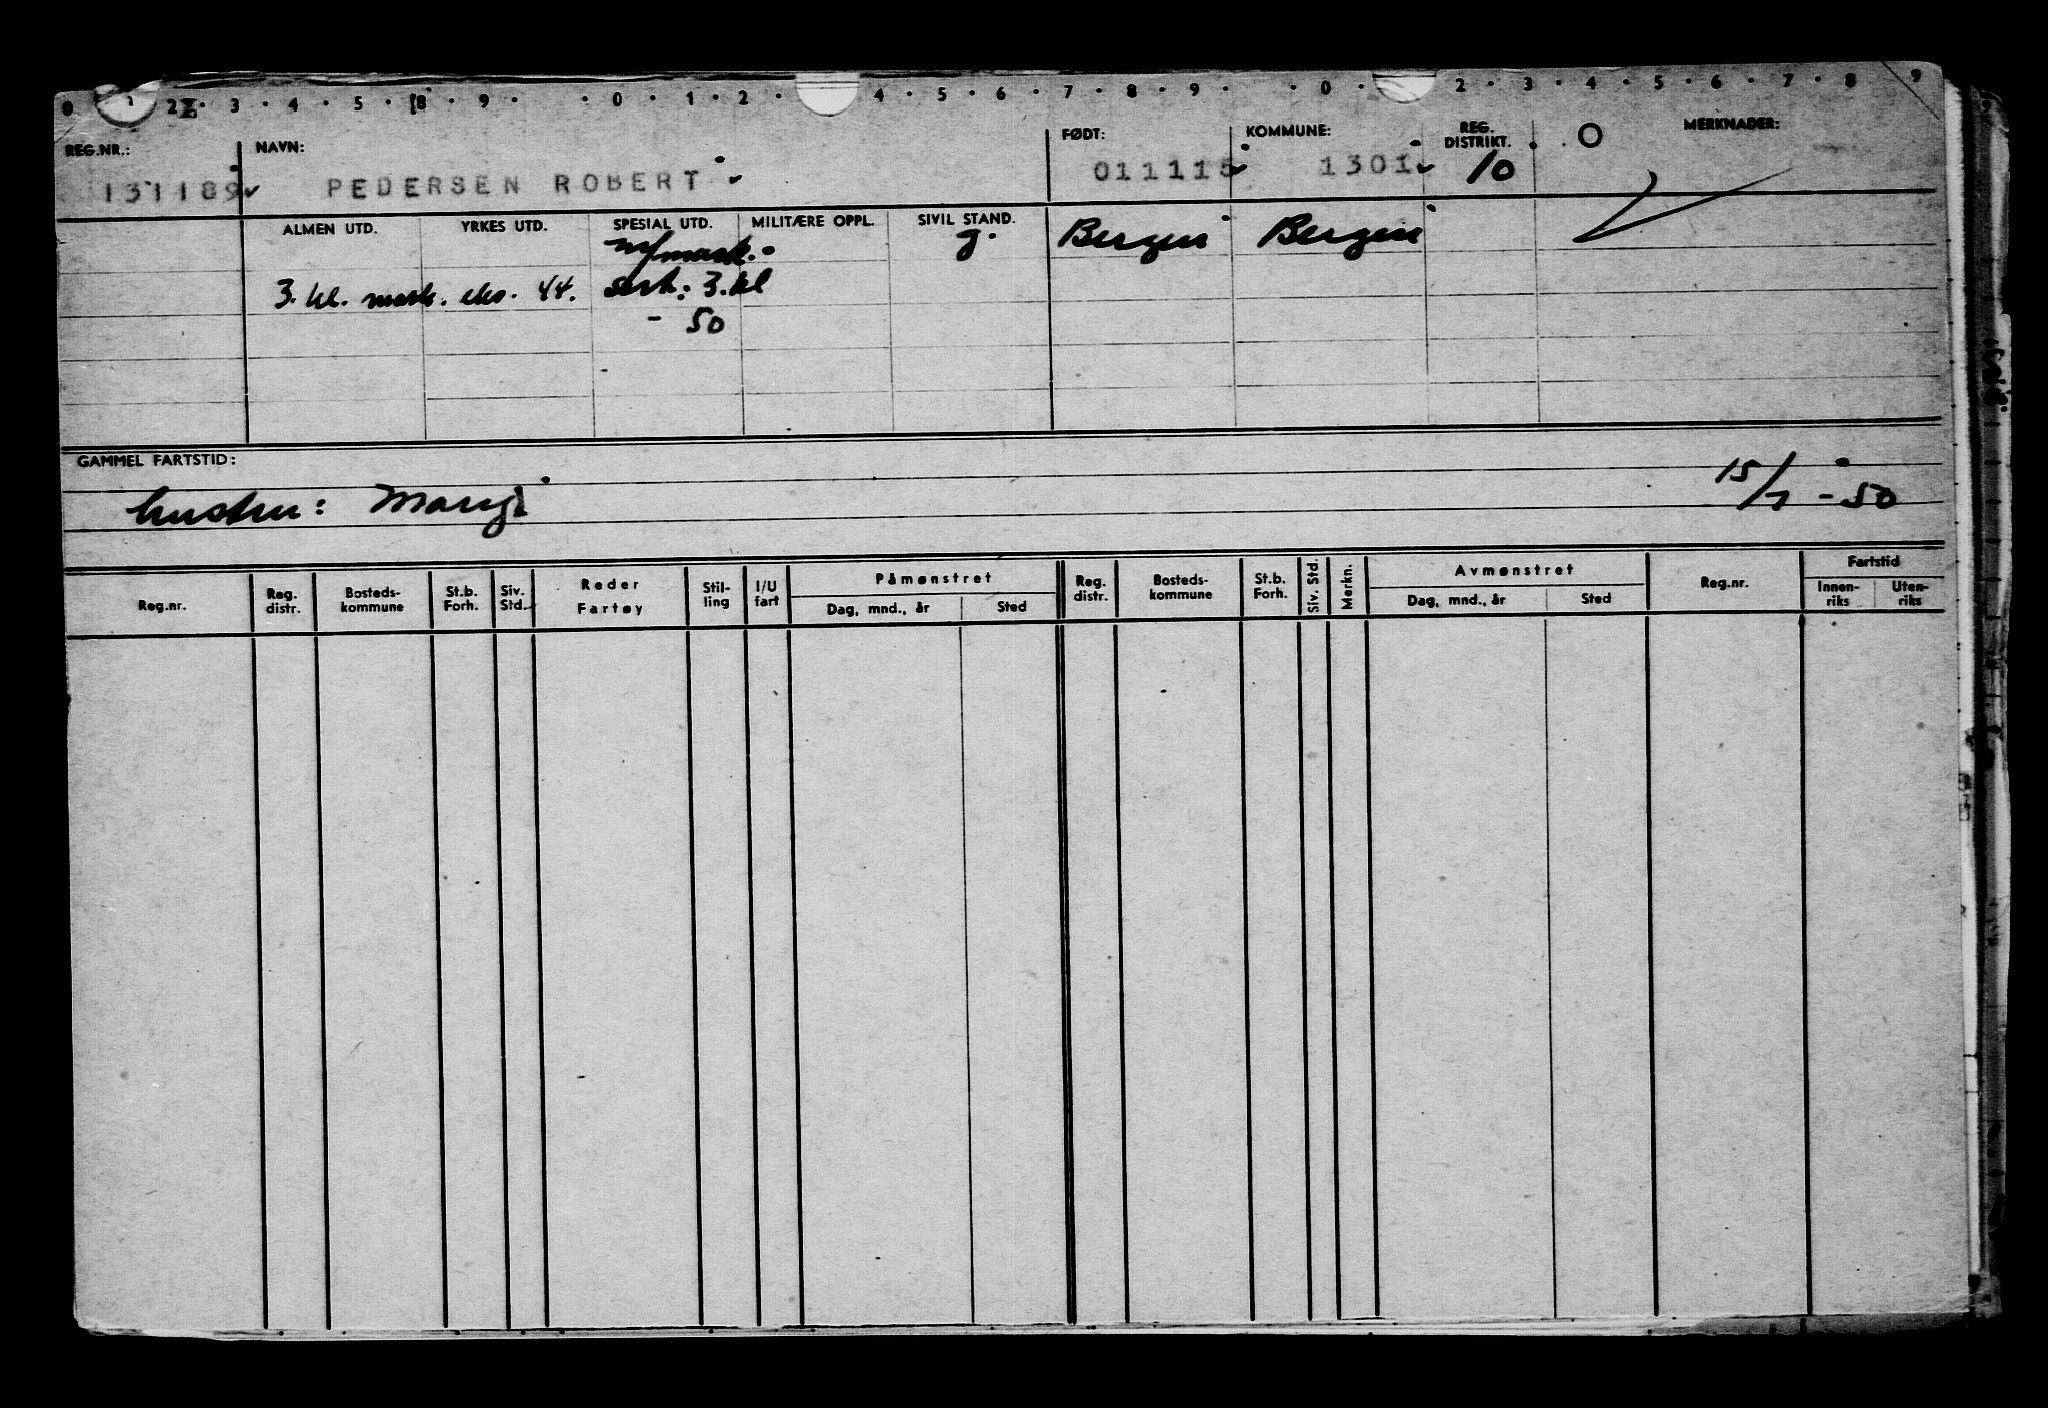 0 1 2 3 4 5 8 9 0 1 2 4 5 6 7 8 9 0 2 3 4 5 6 7 8 9
REG.NR.: NAVN: FØDT: KOMMUNE: REG. DISTRIKT. MERKNADER:
131189 PEDERSEN ROBERT 011115 1301 10
ALMEN UTD. YRKES UTD. SPESIAL UTD. MILITÆRE OPPL. SIVIL STAND.
m/mask. g. Bergen Bergen
3. kl. mask. eks. 44. sert: 3. kl
- 50
GAMMEL FARTSTID:
hustru: 15/7 - 50
Reg.nr. Reg. distr. Bosteds-kommune St.b. Forh. Siv. Std. Reder Fartøy Stil-ling I/U fart Påmønstret Dag, mnd., år Sted Reg. distr. Bosteds-kommune St.b. Forh. Siv. Std. Merkn. Avmønstret Dag, mnd., år Sted Reg.nr. Fartstid Innen-riks Uten-riks